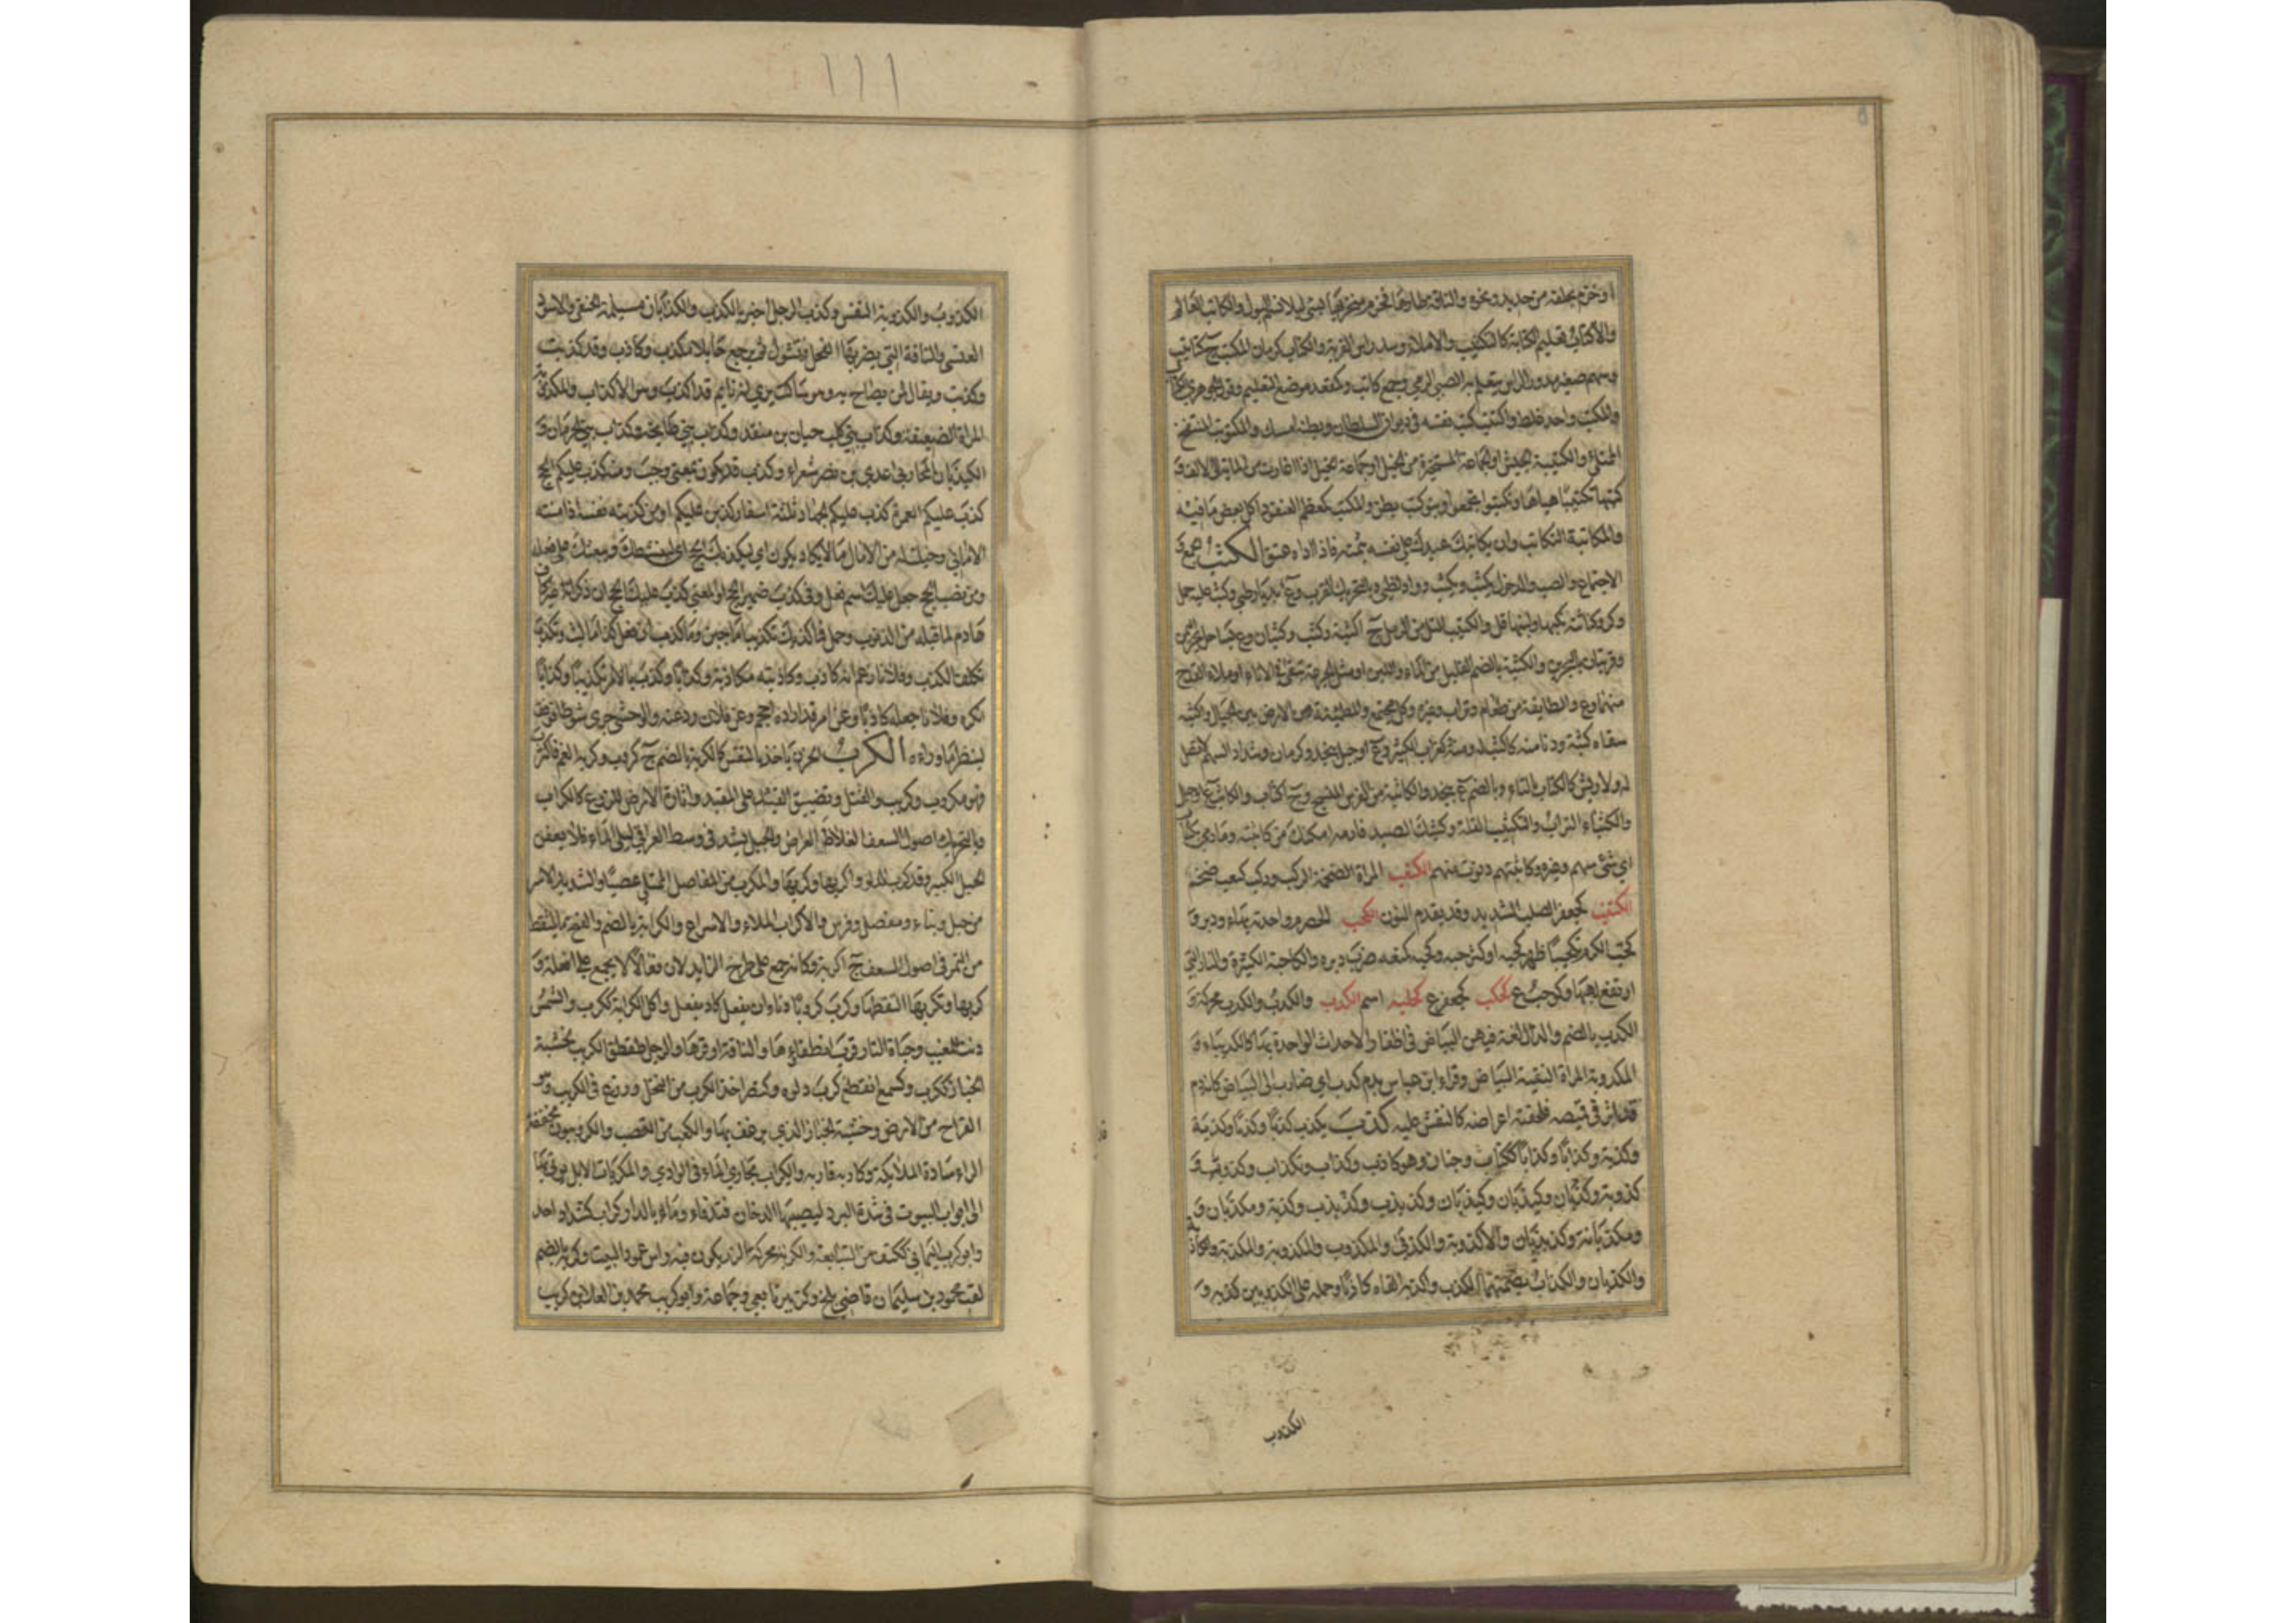 او خزم بحلقة من حديد ونحوه والناقة ظارها فخزم منخريها لئلا تشم البول والكاتب العالم
والاكتاب تعليم الكتابة كالتكتيب والاملاء وشد راس القربة والكتاب كرمان المكتب ج كتاتيب
وسهم صغير مدور الراس يتعلم به الصبي الرمي وجمع كاتب وكمقعد موضع التعليم وقول الجوهري الكتاب
والمكتب واحد غلط واكتتب كتب نفسه في ديوان السلطان وبطنه امسك والمكتوتب المنتفخ
الممتلئ والكتيبة الجيش او الجماعة المستحيزة من الخيل او جماعة الخيل اذا اغارت من المائة الى الالف و
كتبها تكتيبا هياها وتكتبوا تجمعوا وبنو كتب بطن والمكتب كمعظم العنقود اكل بعض ما فيه
والمكاتبة التكاتب وان يكاتبك عبدك على نفسه بثمنه فاذا اداه عتق الكثب الجمع و
الاجتماع والصب والدخول يكثب ويكثب وواد لطيئ وبالتحريك القرب وع بديار طيئ وكثب عليه حمل
وكر وكنانته نكبها ولبنها قل والكثيب التل من الرمل ج اكثبة وكثب وكثبان وع بساحل بحر اليمن
وقريتان بالبحرين والكثبة بالضم القليل من الماء واللبن او مثل الجرعة تبقى في الاناء او ملاء القدح
منهما وع والطايفة من طعام وتراب وغيره وكل مجتمع والمطمئنة من الارض بين الجبال وكثبه
سقاه كثبة ودنا منه كاكثب له ومنه كغراب الكثير وع او جبل بنجد وكرمان وشداد السهم لا نصل
له ولا ريش كالكتاب بالتاء وبالضم ع بنجد والكاثبة من الفرس المنسج وج اكثاب والكاثب ع او جبل
والكثباء التراب والتكثيب القلة وكثبك الصيد فارمه امكنك من كاثبته وما رمي بكثاب
اي شئ سهم وغيره وكاثبتهم دنوت منهم الكثعب المراة الضخمة الركب وركب كثعب ضخم
الكثنب كجعفر الصلب الشديد وقد يقدم النون الكحب الحصرم واحدته بهاء والدبر و
كحب الكرم تكحيبا ظهر كحبه او كثر حبه وكحبه كمنعه ضرب دبره والكاحبة الكثيرة والنار التي
ارتفع لهبها وكوحب ع كحكب كجعفر ع كحلبه اسم الكدب والكدب والكدب محركة و
الكدب بالضم والدال لغة فيهن البياض في اظفار الاحداث الواحدة بهاء كالكديباء و
المكدوبة المراة النقية البياض وقراء ابن عباس بدم كدب اي ضارب الى البياض كانه دم
قد اثر في قميصه فلحقته اعراضه كالنقش عليه كذب يكذب كذبا وكذبا وكذبة
وكذبة وكذابا وكذابا ككتاب وجنان وهو كاذب وكذاب وتكذاب وكذوب و
كذوبة وكذبان وكيذبان وكيذبان وكذبذب وكذبذب وكذبة ومكذبان و
ومكذبانة وكذبذبان والاكذوبة والكذبى والمكذوب والمكذوبة والمكذبة والكاذبة
والكذبان والكذاب بضمتهما الكذب واكذبه الفاه كاذبا وحمله على الكذب وبين كذبه و
الكذوب
١١١
الكذوب والكذوبة النفس وكذب الرجل اخبر بالكذب والكذابان مسيلمة الحنفي والاسود
العنسي والناقة التي يضربها الفحل فتشول ثم يرجع حايلا مكذب وكاذب وقد كذبت
وكذبت ويقال لمن يصاح به وهو ساكت يري انه نايم قد اكذب وهو الاكذاب والمكذوبة
المراة الضعيفة وكذاب بني كلب حيان بن منقذ وكذاب بني طابخة وكذاب بني الحرماز و
الكيذبان المحاربي عدي بن نصر شعراء وكذب قد يكون بمعنى وجب ومنه كذب عليكم الحج
كذب عليكم العمرة كذب عليكم الجهاد ثلثة اسفار كذبن عليكم او من كذبته نفسه اذا منته
الاماني وخيلت له من الامال ما لا يكاد يكون اي ليكذبك الحج اي لينشطك ويبعثك على فعله
ومن نصب الحج جعل عليك اسم فعل وفي كذب ضمير الحج او المعنى كذب عليك الحج ان ذكر انه غير كاف
هادم لما قبله من الذنوب وحمل فما كذب تكذيبا ما جبن وما كذب ان فعل كذا ما لبث وتكذب
تكلف الكذب وفلانا زعم انه كاذب وكاذبته مكاذبة وكذابا وكذب بالامر تكذيبا وكذابا
انكره وفلانا جعله كاذبا وعن امر قد اراده احجم وعن فلان رد عنه والوحشي جرى شوطا فوقف
لينظر ما وراءه الكرب الحزن ياخذ بالنفس كالكربة بالضم ج كروب وكربه الغم فاكترب
فهو مكروب وكريب والفتل وتضييق القيد على المقيد واثارة الارض للزرع كالكراب
وبالتحريك اصول السعف الغلاظ العراض والحبل يشد في وسط العراقي ليلي الماء فلا يعفن
الحبل الكبير وقد كرب الدلو واكربها وكربها والمكرب من المفاصل الممتلي عصبا والشديد الاسر
من حبل وبناء ومفصل وفرس والاكراب الملاء والاسراع والكرابة بالضم والفتح ما يلتقط
من التمر في اصول السعف ج اكربة وكانه جمع على طرح الزايد لان فعالا لا يجمع على افعلة و
كربها وتكربها التقطها وكرب كروبا دنا وان يفعل كاد يفعل واكل الكرابة ككرب والشمس
دنت للمغيب وحياة النار قرب انطفاؤها والناقة اوقرها والرجل طقطق الكريب لخشبة
الخباز ككرب وكسمع انقطع كرب دلوه وكنصر اخذ الكرب من النخل وزرع في الكريب وهو
القراح من الارض وخشبة الخباز الذي يرغف بها والكعب من القصب والكروبيون مخففة
الراء سادة الملائكة وكاربه قاربه والكراب مجاري الماء في الوادي والمكربات الابل يوتى بها
الى ابواب البيوت في شدة البرد ليصيبها الدخان فتدفاء وما بالدار كراب كشداد احد
وابو كرب اليماني ككتف من التبابعة والكربة محركة الزر يكون فيه راس عمود البيت وكربة بالضم
لقب محمود بن سليمان قاضي بلخ وكزبير تابعي وجماعة وابو كريب محمد بن العلا بن كريب